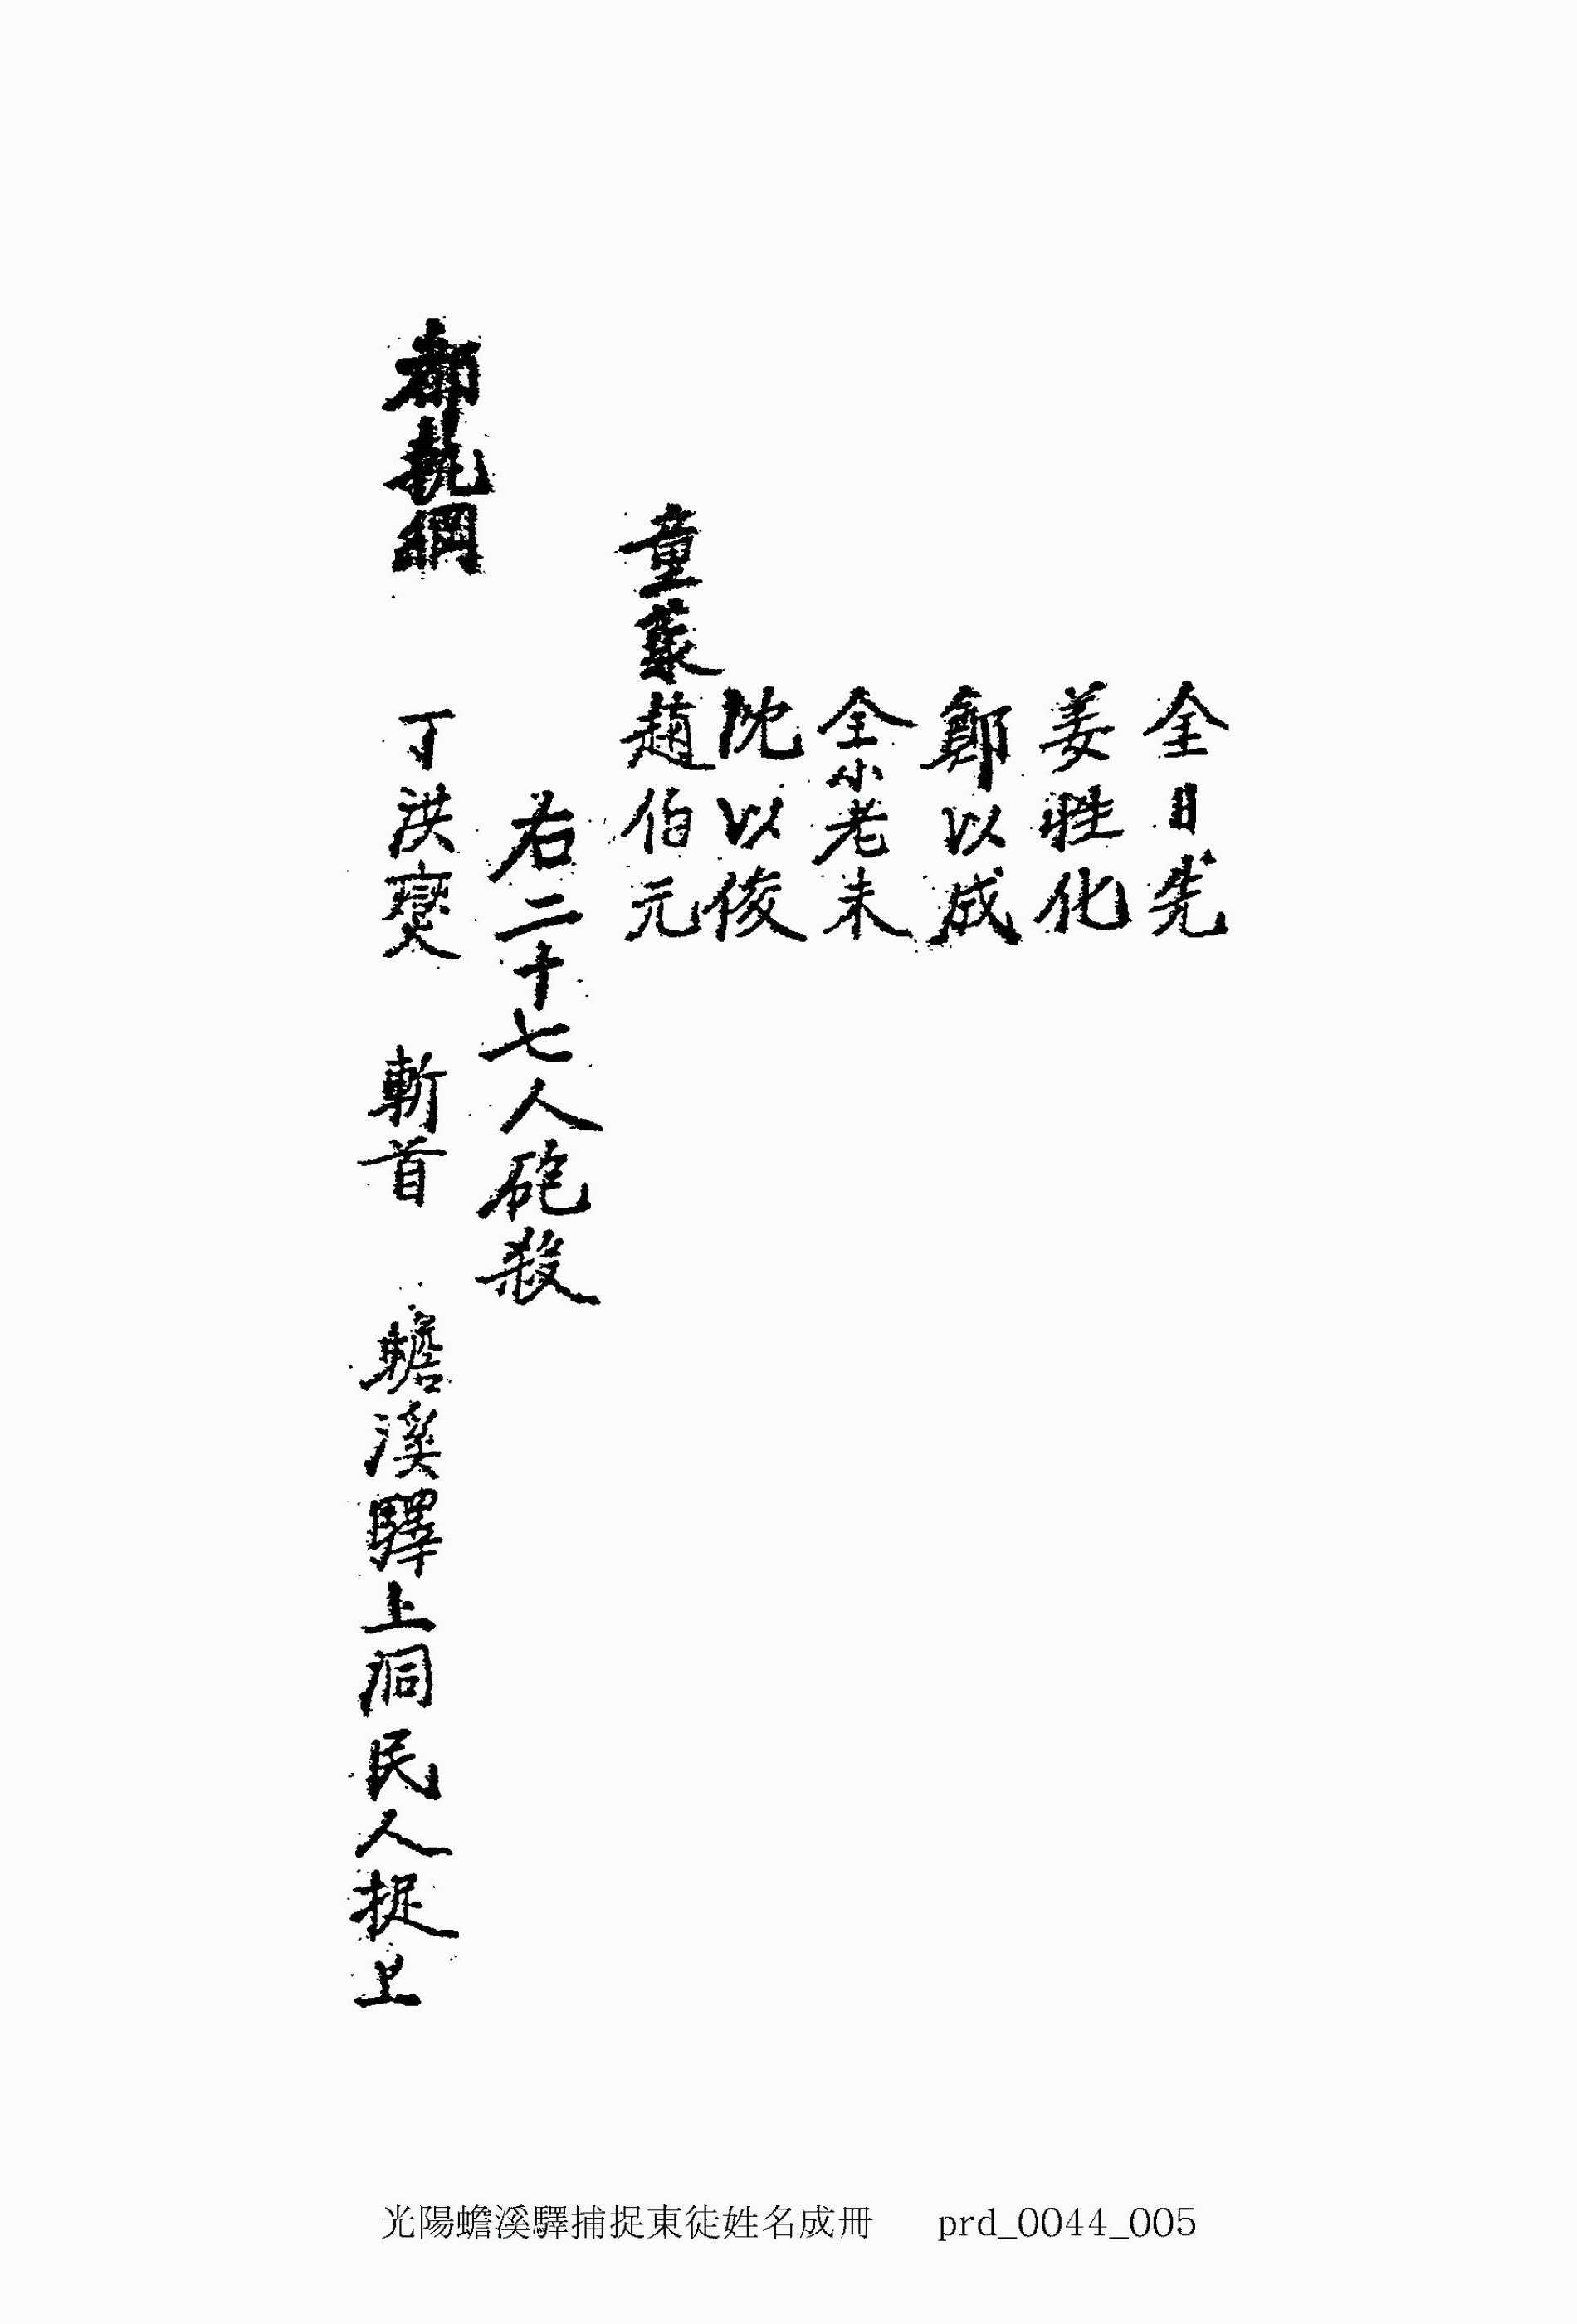 金日先
姜甡化
鄭以成
全小老未
沈以俊
童蒙 趙伯元
右二十七人砲殺
都執綱 丁洪燮 斬首 蟾溪驛上洞民人捉上
光陽蟾溪驛捕捉東徒姓名成冊 prd_0044_005